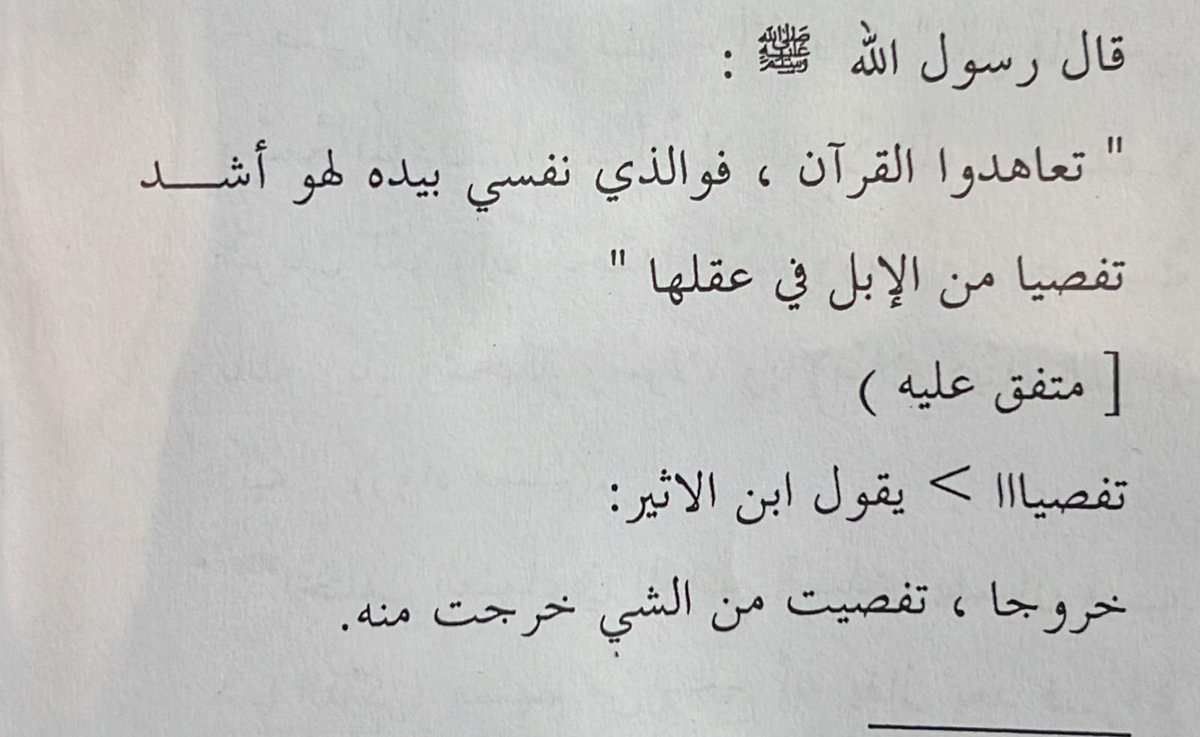 قال رسول الله ﷺ :
" تعاهدوا القرآن ، فوالذي نفسي بيده لهو أشـــد
تفصيا من الإبل في عقلها "
[ متفق عليه )
تفصيااا > يقول ابن الاثير:
خروجا ، تفصيت من الشي خرجت منه.